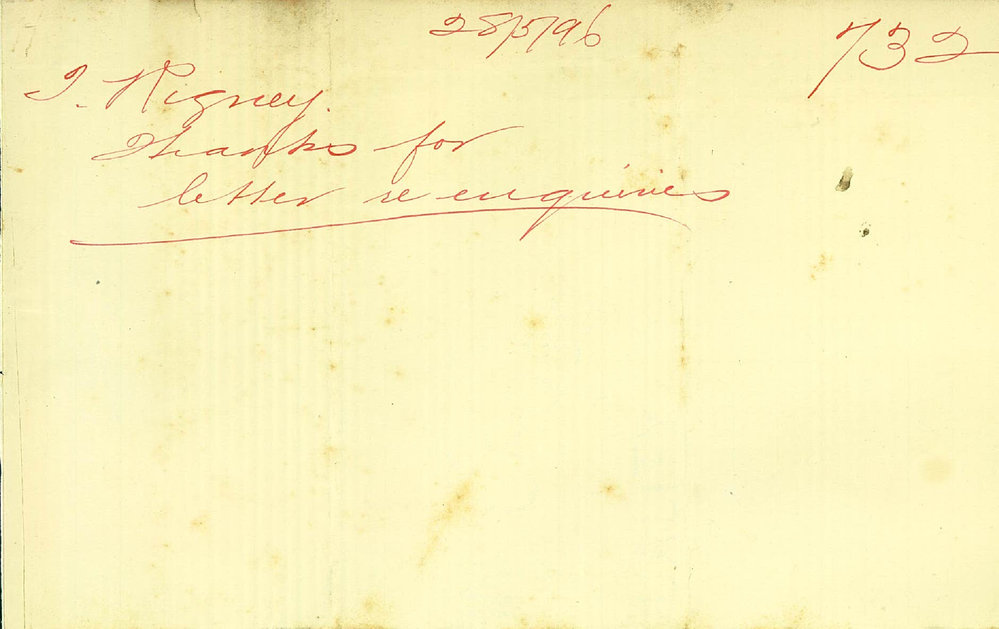 28/5/96
732
J. Rigney.
Thanks for
letter re enquiries